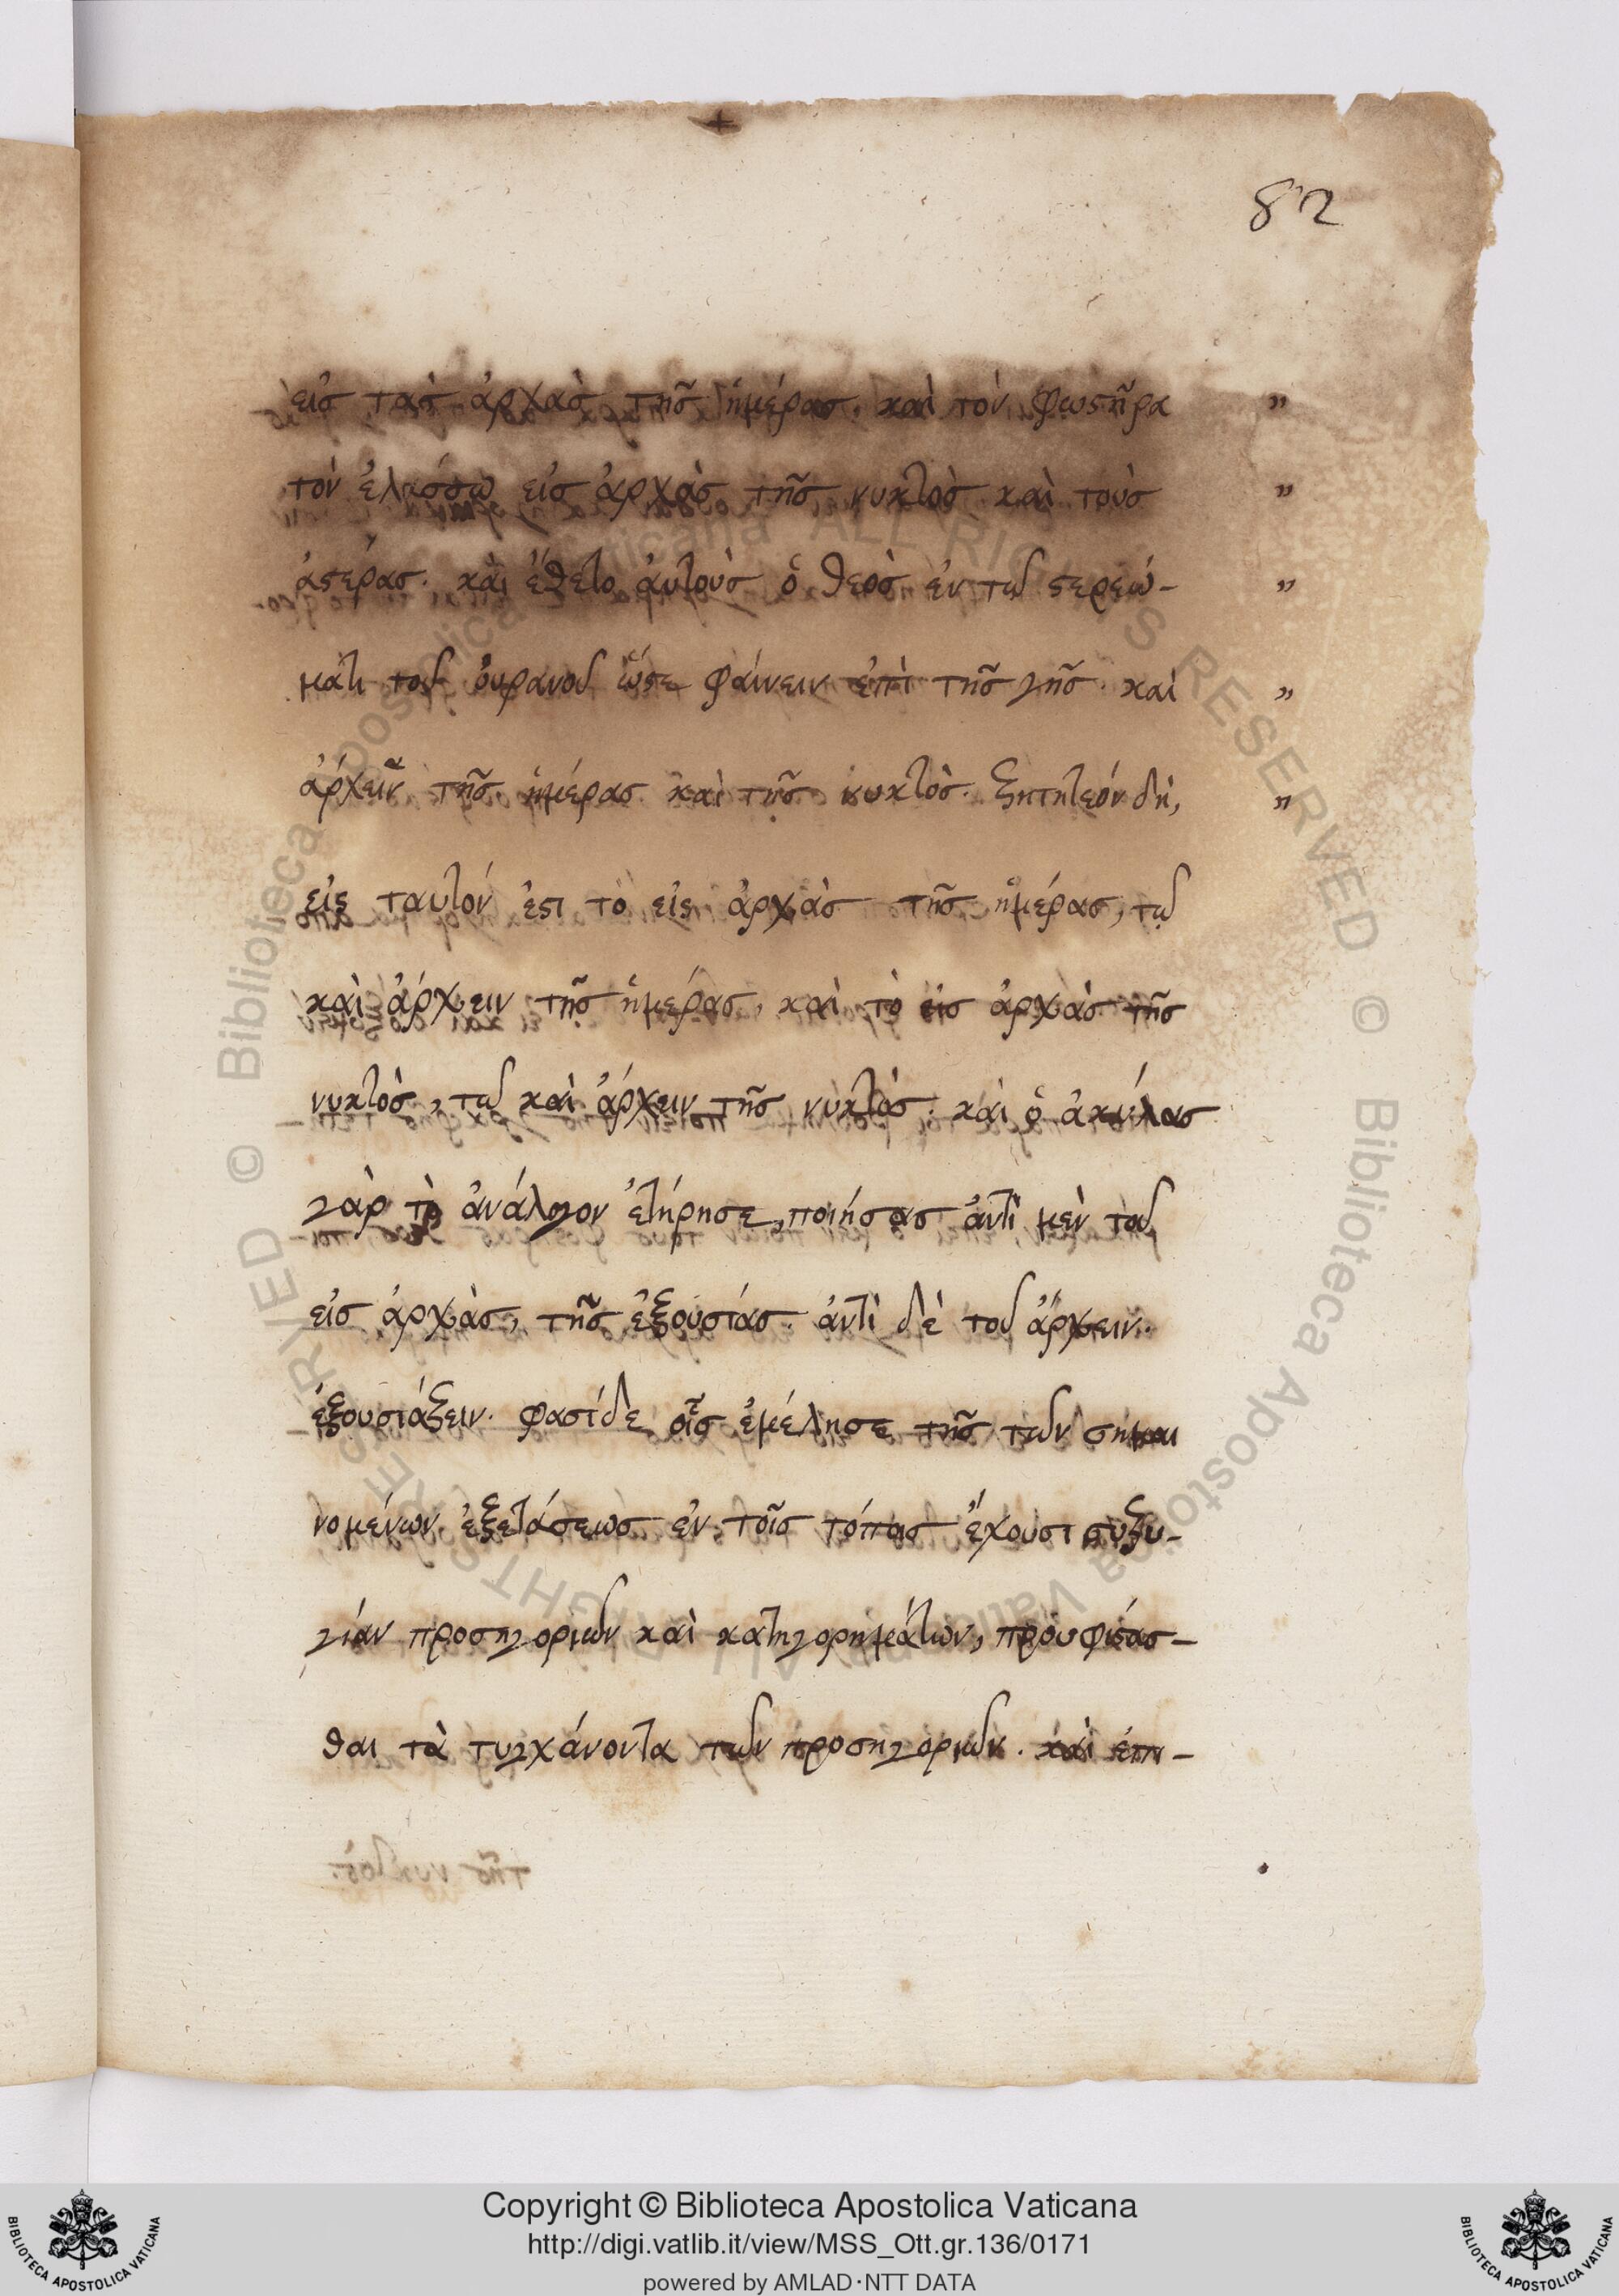 82
εἰσ τὰσ ἀρχὰσ τῆσ ἡμέρασ. καὶ τὸν φωστῆρα "
τὸν ἐλάσσω εἰσ ἀρχὰσ τῆσ νυκτὸσ καὶ τοὺσ "
ἀστέρασ. καὶ ἔθετο ἀυτοὺσ ὁ θεὸσ ἐν τῶ στερεώ- "
ματι τοῦ ὀυρανοῦ ὥστε φάινειν ἐπὶ τῆσ γῆσ. καὶ "
ἄρχειν τῆσ ἡμέρασ καὶ τῆσ νυκτὸσ. ζητητεόν δὴ, "
εἰς ταυτόν ἐστι τὸ εἰς ἀρχὰσ τῆσ ἡμέρας, τῶ
καὶ ἄρχειν τῆσ ἡμέρασ, καὶ τὸ εἰσ ἀρχὰσ τῆσ
νυκτὸσ, τῶ καὶ ἄρχειν τῆσ νυκτὸσ. καὶ ὁ ἀκύλασ
γὰρ τὸ ἀνάλογον ἐτήρησε, ποιήσασ ἀντὶ μὲν τοῦ
εἰσ ἀρχὰσ, τῆσ ἐξουσίασ. ἀντὶ δὲ τοῦ ἄρχειν.
ἐξουσιάζειν. φασίδε οἷσ ἐμέλησε τῆσ τῶν σημαι
νομένων ἐξετάσεωσ ἐν τοῖσ τόποισ ἔχουσι συζυ-
γίαν προσηγοριῶν καὶ κατηγορημάτων, προυφίστασ-
θαι τὰ τυγχάνοντα τῶν προσηγοριῶν. καὶ ἐπι-
Copyright © Biblioteca Apostolica Vaticana
http://digi.vatlib.it/view/MSS_Ott.gr.136/0171
powered by AMLAD·NTT DATA
BIBLIOTECA APOSTOLICA VATICANA
BIBLIOTECA APOSTOLICA VATICANA
© Biblioteca Apostolica Vaticana ALL RIGHTS RESERVED © Biblioteca Apostolica Vaticana ALL RIGHTS RESERVED